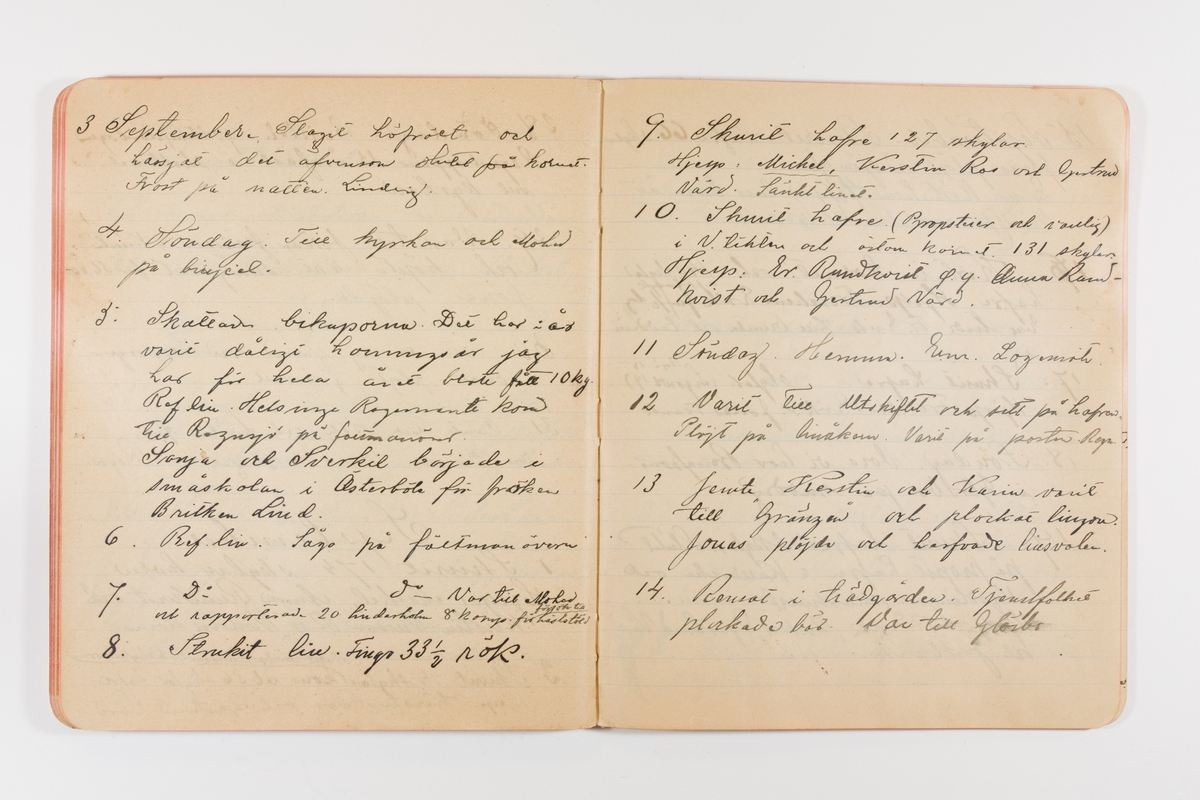 3 September. Slagit höfröet och
hässjat det äfvensom slutat på kornet.
Frost på natten. Lindrig.
4. Söndag. Till kyrkan och Mohed
på bicycel.
5. Skattade bikuporna. Det har i år
varit dåligt honungsår jag
har för hela året blott fått 10 kg.
Ref. lin. Helsinge Regemente kom
till Regnsjö på fältmanöver.
Sonja och Sverkil började i
småskolan i Österböle för fröken
Britken Lind.
6. Ref. lin. Sågo på fältmanövern
7. D:o d:o Var till Mohed
och rapporterade 20 linderholm 8 korgs
8. Strukit lin. Fingo 33 1/2 rök.
9. Skurit hafre 127 skylar.
Hjelp: Michel, Kerstin Ros och Gertrud
Värd. Sänkt linet.
10. Skurit hafre (Propstier och vanlig)
i V. täkten och ofvan kornet 131 skylar
Hjelp: Er. Rundkvist Anna Rund-
kvist och Gertrud Värd.
11 Söndag. Hemma. Em. Logemöte.
12 Varit till Utskiftet och sett på hafren.
Plöjt på linåkern. Varit på posten Regn
13 Jemte Kerstin och Karin varit
till "Gränzen" och plockat lingon.
Jonas plöjde och harfvade linsvalen.
14. Rensat i trädgården. Tjenstfolket
plockade bär. Var till Glösbo